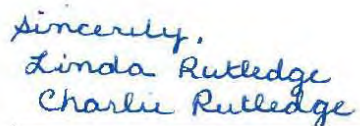 Sincerely,
Linda Rutledge
Charlie Rutledge